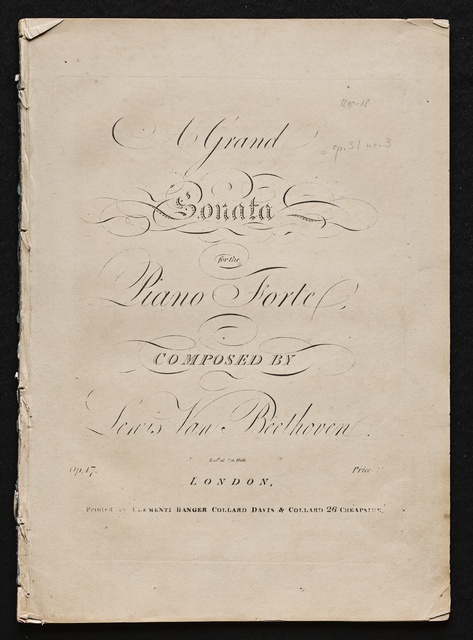 A Grand
op. 31 no. 3
Sonata
for the
Piano Forte,
COMPOSED BY
Lewis Van Beethoven.
Op. 47. Price
LONDON,
Printed by CLEMENTI BANGER COLLARD DAVIS & COLLARD 26 CHEAPSIDE.